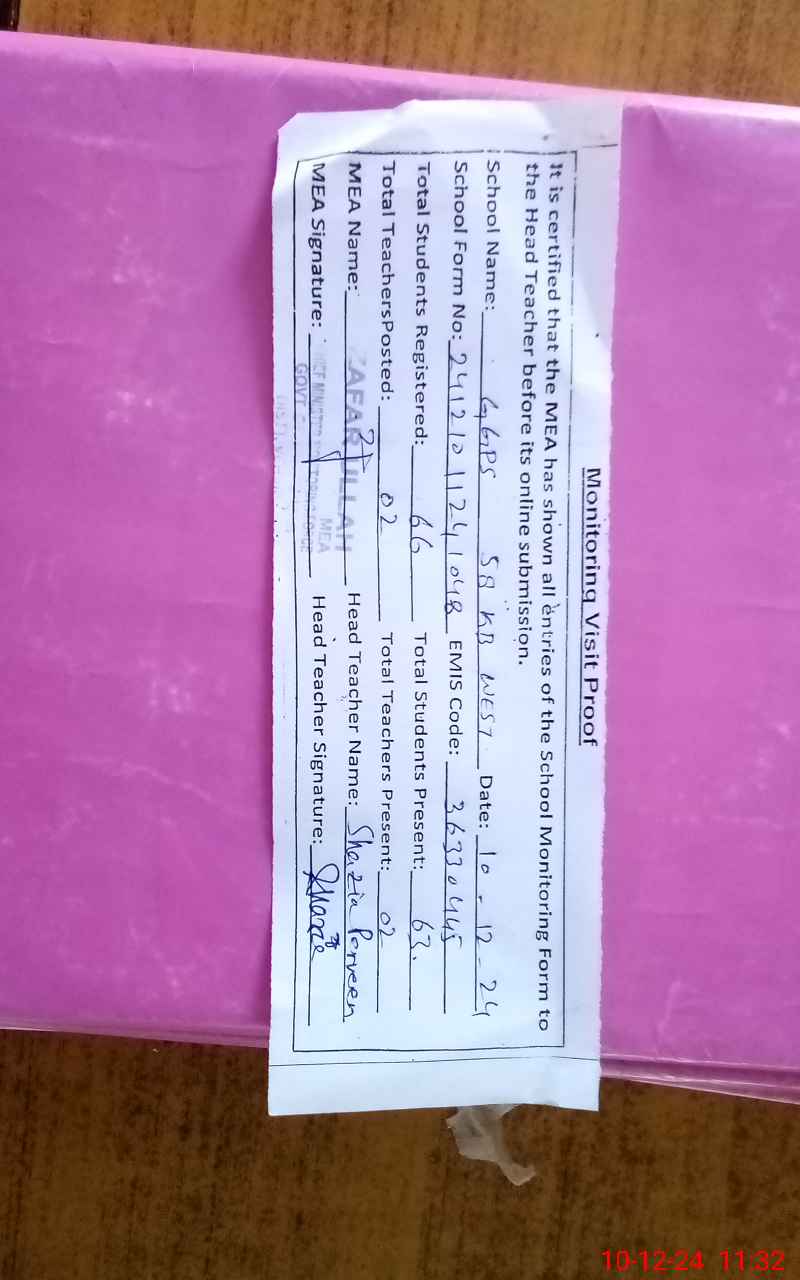 Monitoring Visit Proof
It is certified that the MEA has shown all entries of the School Monitoring Form to
the Head Teacher before its online submission.
School Name: GGPS 58 KB WEST Date: 10-12-24
School Form No: 24121011241048 EMIS Code: 36330445
Total Students Registered: 66 Total Students Present: 63.
Total TeachersPosted: 02 Total Teachers Present: 02
MEA Name: ZAFAR ULLAH Head Teacher Name: Shazia Perveen
MEA
MEA Signature: CHIEF MINISTER MONITORING FORCE Head Teacher Signature: Shazia
GOVT
10-12-24 11:32